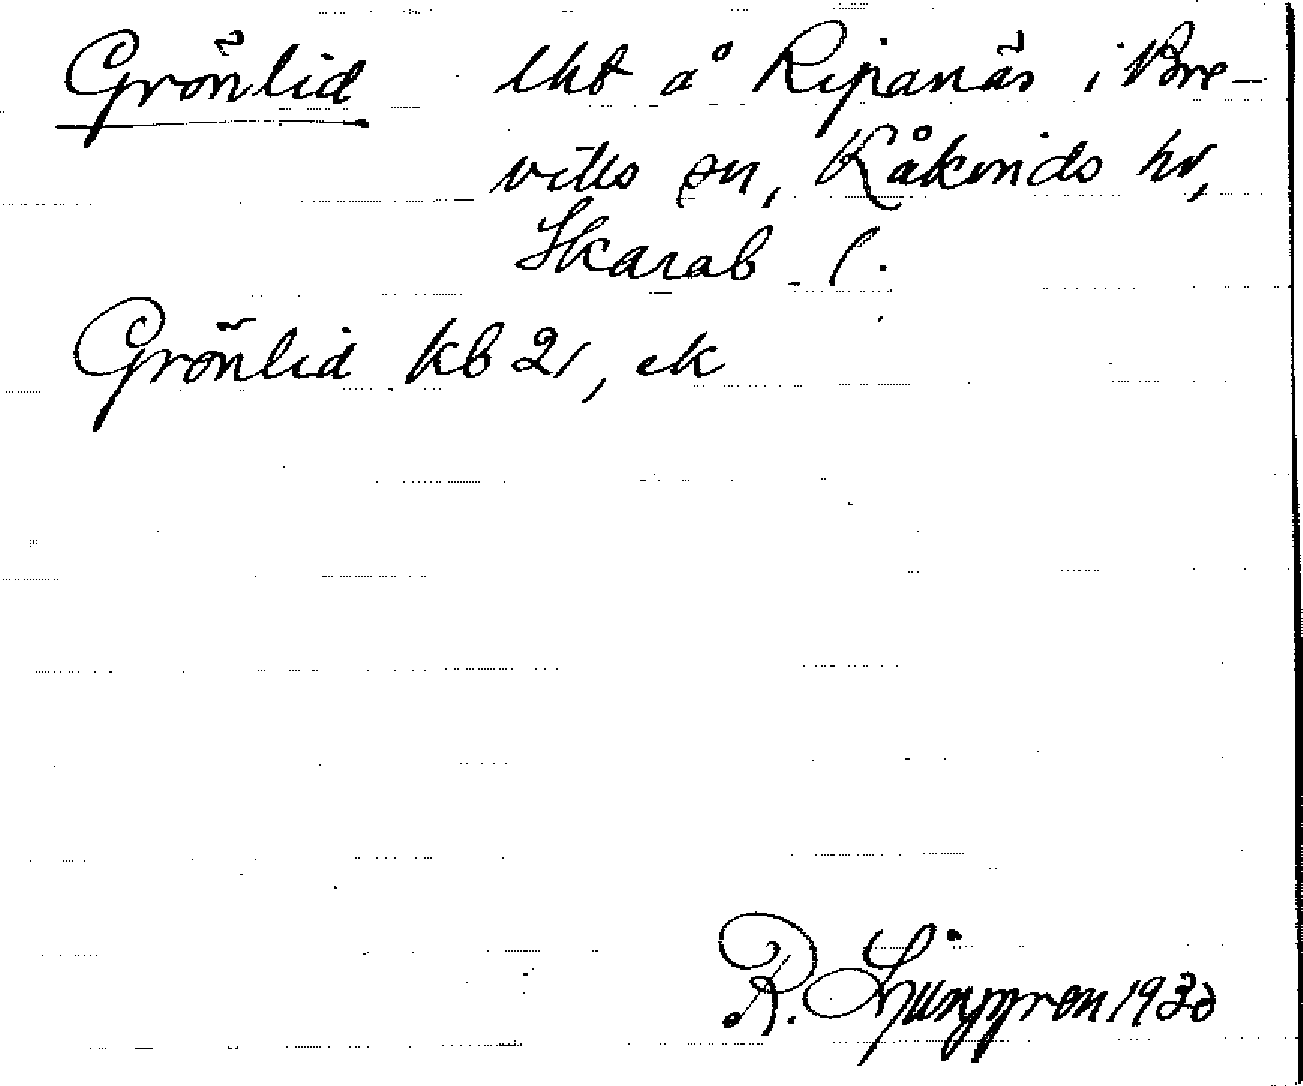 Grönlid lht å Ripanäs i Bre-
viks sn, Kåkinds hd,
Skarab. l.
Grönlid kb 2r, ek
R. Ljunggren 1930